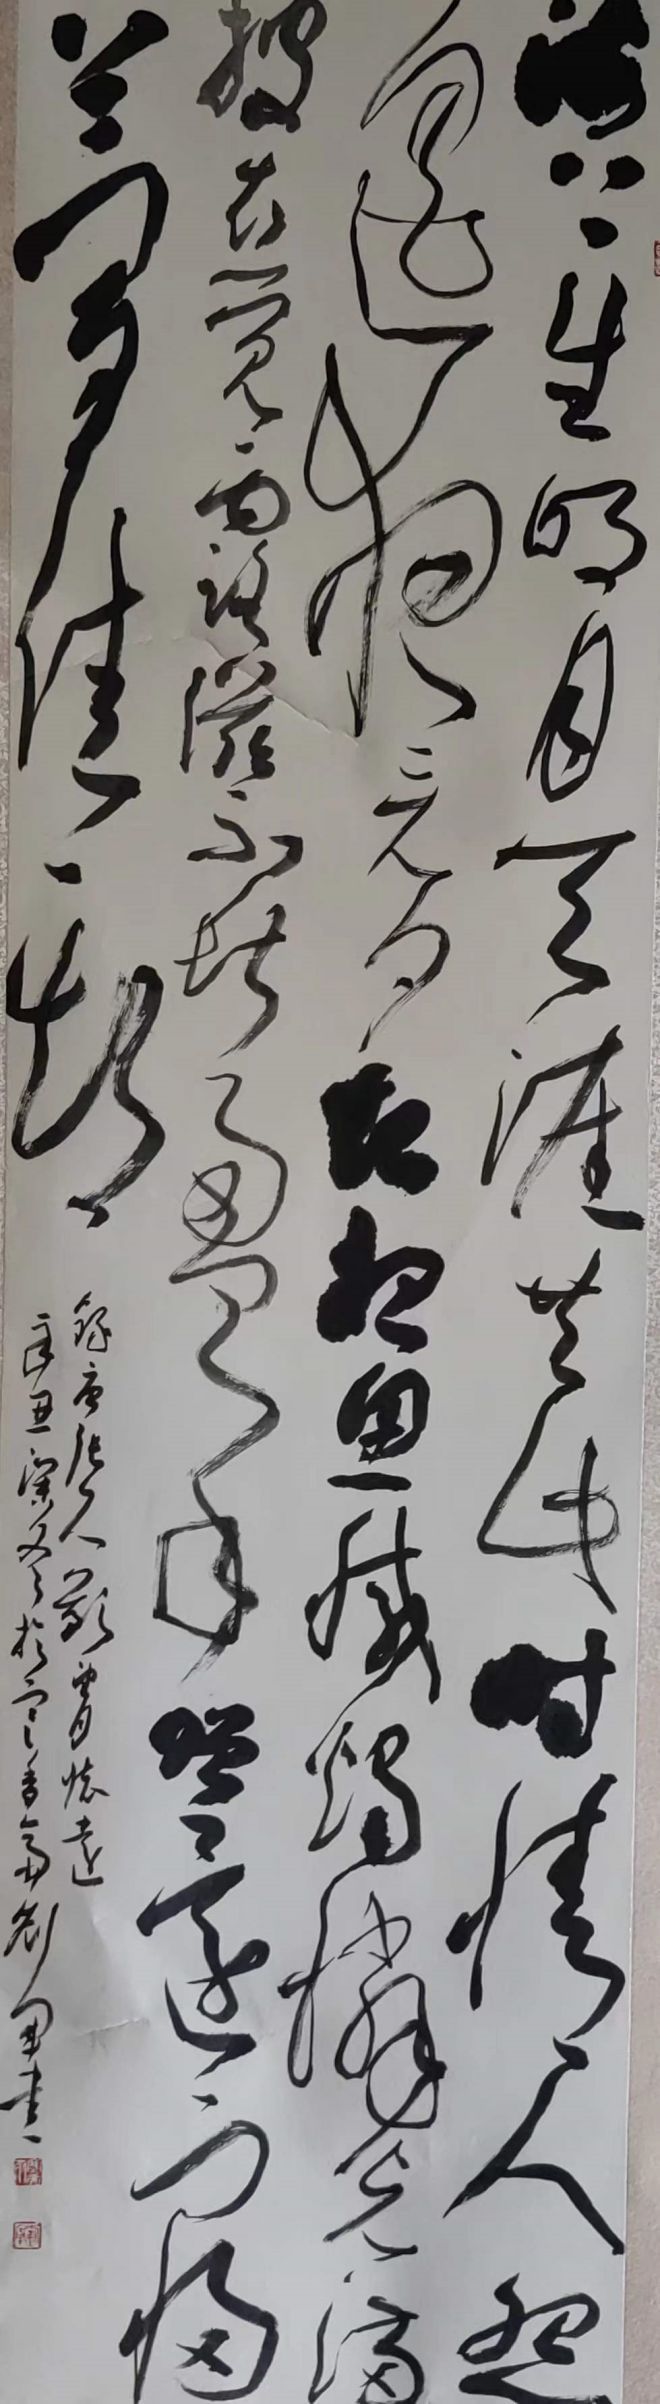 海上生明月天涯共此时情人怨
遥夜竟夕起相思滅燭憐光滿
披衣覺露滋不堪盈手贈還寢
夢佳期
錄唐張九齡望月懷遠
辛丑深冬於香齋劉軍書